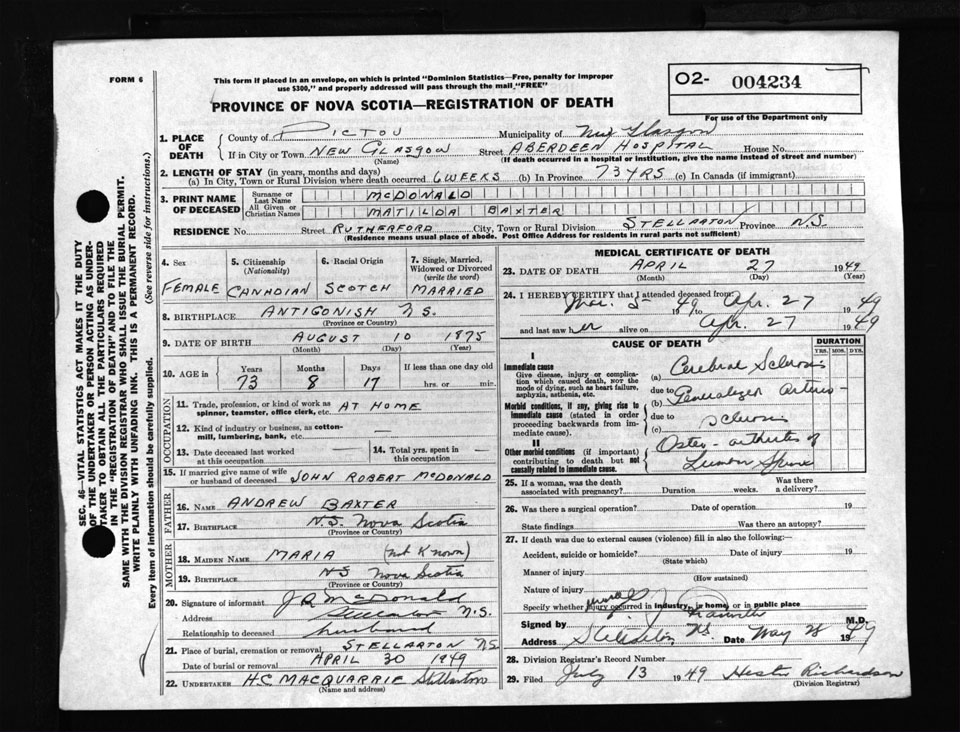 FORM 6
This form if placed in an envelope, on which is printed "Dominion Statistics—Free, penalty for improper
use $300," and properly addressed will pass through the mail "FREE"
O2- 004234
For use of the Department only
PROVINCE OF NOVA SCOTIA—REGISTRATION OF DEATH
SEC. 46—VITAL STATISTICS ACT MAKES IT THE DUTY
OF THE UNDERTAKER OR PERSON ACTING AS UNDER-
TAKER TO OBTAIN ALL THE PARTICULARS REQUIRED
IN THE "REGISTRATION OF DEATH" AND TO FILE THE
SAME WITH THE DIVISION REGISTRAR WHO SHALL ISSUE THE BURIAL PERMIT.
WRITE PLAINLY WITH UNFADING INK. THIS IS A PERMANENT RECORD.
Every item of information should be carefully supplied. (See reverse side for instructions.)
1. PLACE OF DEATH
County of PICTOU Municipality of New Glasgow
If in City or Town NEW GLASGOW Street ABERDEEN HOSPITAL House No.
(Name) (If death occurred in a hospital or institution, give the name instead of street and number)
2. LENGTH OF STAY (in years, months and days)
(a) In City, Town or Rural Division where death occurred 6 WEEKS (b) In Province 73 YRS (c) In Canada (if immigrant)
3. PRINT NAME OF DECEASED
Surname or Last Name MCDONALD
All Given or Christian Names MATILDA BAXTER
RESIDENCE No. Street RUTHERFORD City, Town or Rural Division STELLARTON Province N.S.
(Residence means usual place of abode. Post Office Address for residents in rural parts not sufficient)
4. Sex 5. Citizenship (Nationality) 6. Racial Origin 7. Single, Married, Widowed or Divorced (write the word)
FEMALE CANADIAN SCOTCH MARRIED
8. BIRTHPLACE ANTIGONISH N.S.
(Province or Country)
9. DATE OF BIRTH AUGUST 10 1875
(Month) (Day) (Year)
10. AGE in Years Months Days If less than one day old
73 8 17 hrs. or min.
OCCUPATION
11. Trade, profession, or kind of work as spinner, teamster, office clerk, etc. AT HOME
12. Kind of industry or business, as cotton-mill, lumbering, bank, etc.
13. Date deceased last worked at this occupation 14. Total yrs. spent in this occupation
15. If married give name of wife or husband of deceased JOHN ROBERT MCDONALD
FATHER
16. Name ANDREW BAXTER
17. Birthplace N.S. Nova Scotia
(Province or Country)
MOTHER
18. Maiden Name MARIA (not Known)
19. Birthplace NS Nova Scotia
(Province or Country)
20. Signature of informant J R McDonald
Address Stellarton N.S.
Relationship to deceased husband
21. Place of burial, cremation or removal STELLARTON NS
Date of burial or removal APRIL 30 1949
22. UNDERTAKER H.C. MACQUARRIE Stellarton
(Name and address)
MEDICAL CERTIFICATE OF DEATH
23. DATE OF DEATH APRIL 27 1949
(Month) (Day) (Year)
24. I HEREBY CERTIFY that I attended deceased from 5 1949 to Apr. 27 1949
and last saw her alive on Apr. 27 1949
CAUSE OF DEATH DURATION
YRS. MOS. DYS.
I
Immediate cause
Give disease, injury or complication which caused death, NOT the mode of dying, such as heart failure, asphyxia, asthenia, etc.
(a) Cerebral Sclerosis
due to
(b) Generalized Arterio-
Morbid conditions, if any, giving rise to immediate cause (stated in order proceeding backwards from immediate cause).
due to sclerosis
(c)
II
Other morbid conditions (if important) contributing to death but not causally related to immediate cause.
Osteo-arthritis of
Lumbar Spine
25. If a woman, was the death associated with pregnancy? Duration weeks. Was there a delivery?
26. Was there a surgical operation? Date of operation 19
State findings Was there an autopsy?
27. If death was due to external causes (violence) fill in also the following:—
Accident, suicide or homicide? Date of injury 19
(State which)
Manner of injury
(How sustained)
Nature of injury
Specify whether injury occurred in industry, in home, or in public place
Signed by M.D.
Address Stellarton NS Date May 28 1949
28. Division Registrar's Record Number
29. Filed July 13 1949 Hester Richardson
(Division Registrar)